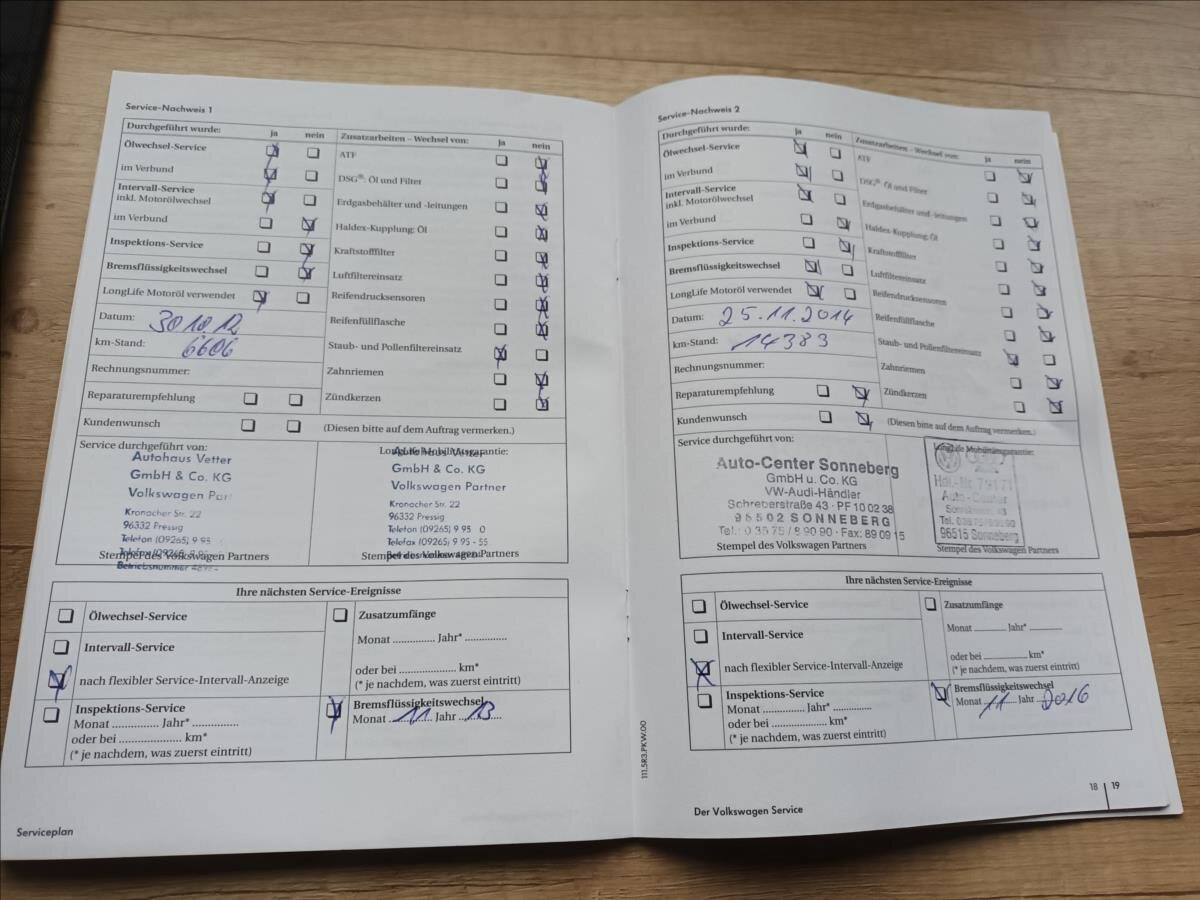 Service-Nachweis 1
Durchgeführt wurde: ja nein
Ölwechsel-Service
im Verbund
Intervall-Service
inkl. Motorölwechsel
im Verbund
Inspektions-Service
Bremsflüssigkeitswechsel
LongLife Motoröl verwendet
Datum: 30 10. 12
km-Stand: 6606
Rechnungsnummer:
Reparaturempfehlung
Kundenwunsch
Zusatzarbeiten – Wechsel von: ja nein
ATF
DSG®: Öl und Filter
Erdgasbehälter und -leitungen
Haldex-Kupplung: Öl
Kraftstofffilter
Luftfiltereinsatz
Reifendrucksensoren
Reifenfüllflasche
Staub- und Pollenfiltereinsatz
Zahnriemen
Zündkerzen
(Diesen bitte auf dem Auftrag vermerken.)
Service durchgeführt von:
Autohaus Vetter
GmbH & Co. KG
Volkswagen Par
Kronacher Str. 22
96332 Pressig
Telefon (09265) 9 95
Stempel des Volkswagen Partners
LongLife Mobilitätsgarantie:
GmbH & Co. KG
Volkswagen Partner
Kronacher Str. 22
96332 Pressig
Telefon (09265) 9 95 0
Telefax (09265) 9 95 - 55
Stempel des Volkswagen Partners
Ihre nächsten Service-Ereignisse
Ölwechsel-Service
Intervall-Service
nach flexibler Service-Intervall-Anzeige
Inspektions-Service
Monat ............... Jahr* ...............
oder bei .................... km*
(* je nachdem, was zuerst eintritt)
Zusatzumfänge
Monat ............... Jahr* ...............
oder bei .................... km*
(* je nachdem, was zuerst eintritt)
Bremsflüssigkeitswechsel
Monat 11 Jahr 13
Serviceplan
Service-Nachweis 2
Durchgeführt wurde: ja nein
Ölwechsel-Service
im Verbund
Intervall-Service
inkl. Motorölwechsel
im Verbund
Inspektions-Service
Bremsflüssigkeitswechsel
LongLife Motoröl verwendet
Datum: 25.11.2014
km-Stand: 14383
Rechnungsnummer:
Reparaturempfehlung
Kundenwunsch
Zusatzarbeiten – Wechsel von: ja nein
ATF
DSG®: Öl und Filter
Erdgasbehälter und -leitungen
Haldex-Kupplung: Öl
Kraftstofffilter
Luftfiltereinsatz
Reifendrucksensoren
Reifenfüllflasche
Staub- und Pollenfiltereinsatz
Zahnriemen
Zündkerzen
(Diesen bitte auf dem Auftrag vermerken.)
Service durchgeführt von:
Auto-Center Sonneberg
GmbH u. Co. KG
VW-Audi-Händler
Schreberstraße 43 · PF 10 02 38
96502 SONNEBERG
Tel.: 0 36 75 / 8 90 90 · Fax: 89 09 15
Stempel des Volkswagen Partners
LongLife Mobilitätsgarantie:
Hdl.-Nr. 79171
Auto-Center
96515 Sonneberg
Stempel des Volkswagen Partners
Ihre nächsten Service-Ereignisse
Ölwechsel-Service
Intervall-Service
nach flexibler Service-Intervall-Anzeige
Inspektions-Service
Monat ............... Jahr* ...............
oder bei .................... km*
(* je nachdem, was zuerst eintritt)
Zusatzumfänge
Monat ............... Jahr* ...............
oder bei .................... km*
(* je nachdem, was zuerst eintritt)
Bremsflüssigkeitswechsel
Monat 11 Jahr 2016
111.5R3.PKW.00
Der Volkswagen Service
18 | 19